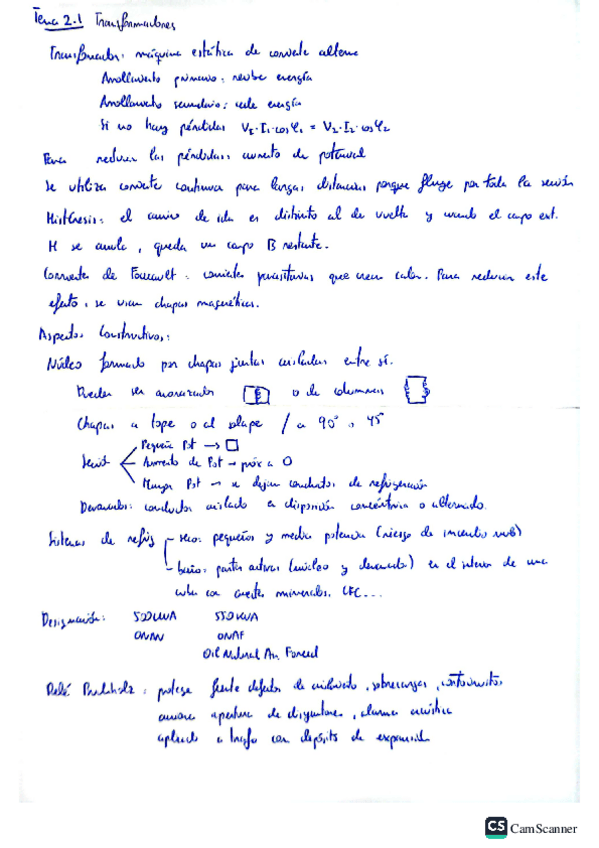 Tema 2.1 Transformadores
Transformador: máquina estática de corriente alterna
Arrollamiento primario: recibe energía
Arrollamiento secundario: cede energía
Si no hay pérdidas V1·I1·cosφ1 = V2·I2·cosφ2
Para reducir las pérdidas: aumento de potencial
Se utiliza corriente continua para largas distancias porque fluye por toda la sección
Histéresis: el camino de ida es distinto al de vuelta y cuando el campo ext.
H se anula, queda un campo B restante.
Corriente de Foucault: corrientes parasitarias que crean calor. Para reducir este
efecto, se usan chapas magnéticas.
Aspectos Constructivos:
Núcleo formado por chapas juntas aisladas entre sí.
Pueden ser acorazados o de columnas
Chapas a tope o al solape / a 90° o 45°
Pequeña Pot → □
Secció Aumento de Pot → próx a O
Mayor Pot → se dejan conductos de refrigeración
Devanados: conductor aislado en disposición concéntrica o alternada.
Sistemas de refrig seco: pequeños y media potencia (riesgo de incendio nulo)
baño: partes activas (núcleo y devanado) en el interior de una
cuba con aceites minerales. CFC...
Designación: 500KVA 550KVA
ONAN ONAF
Oil Natural Air Forced
Relé Buchholz: protege frente defectos de aislamiento, sobrecargas, cortocircuitos
apertura de disyuntores, alarma acústica
aplicado a trafo con depósito de expansión